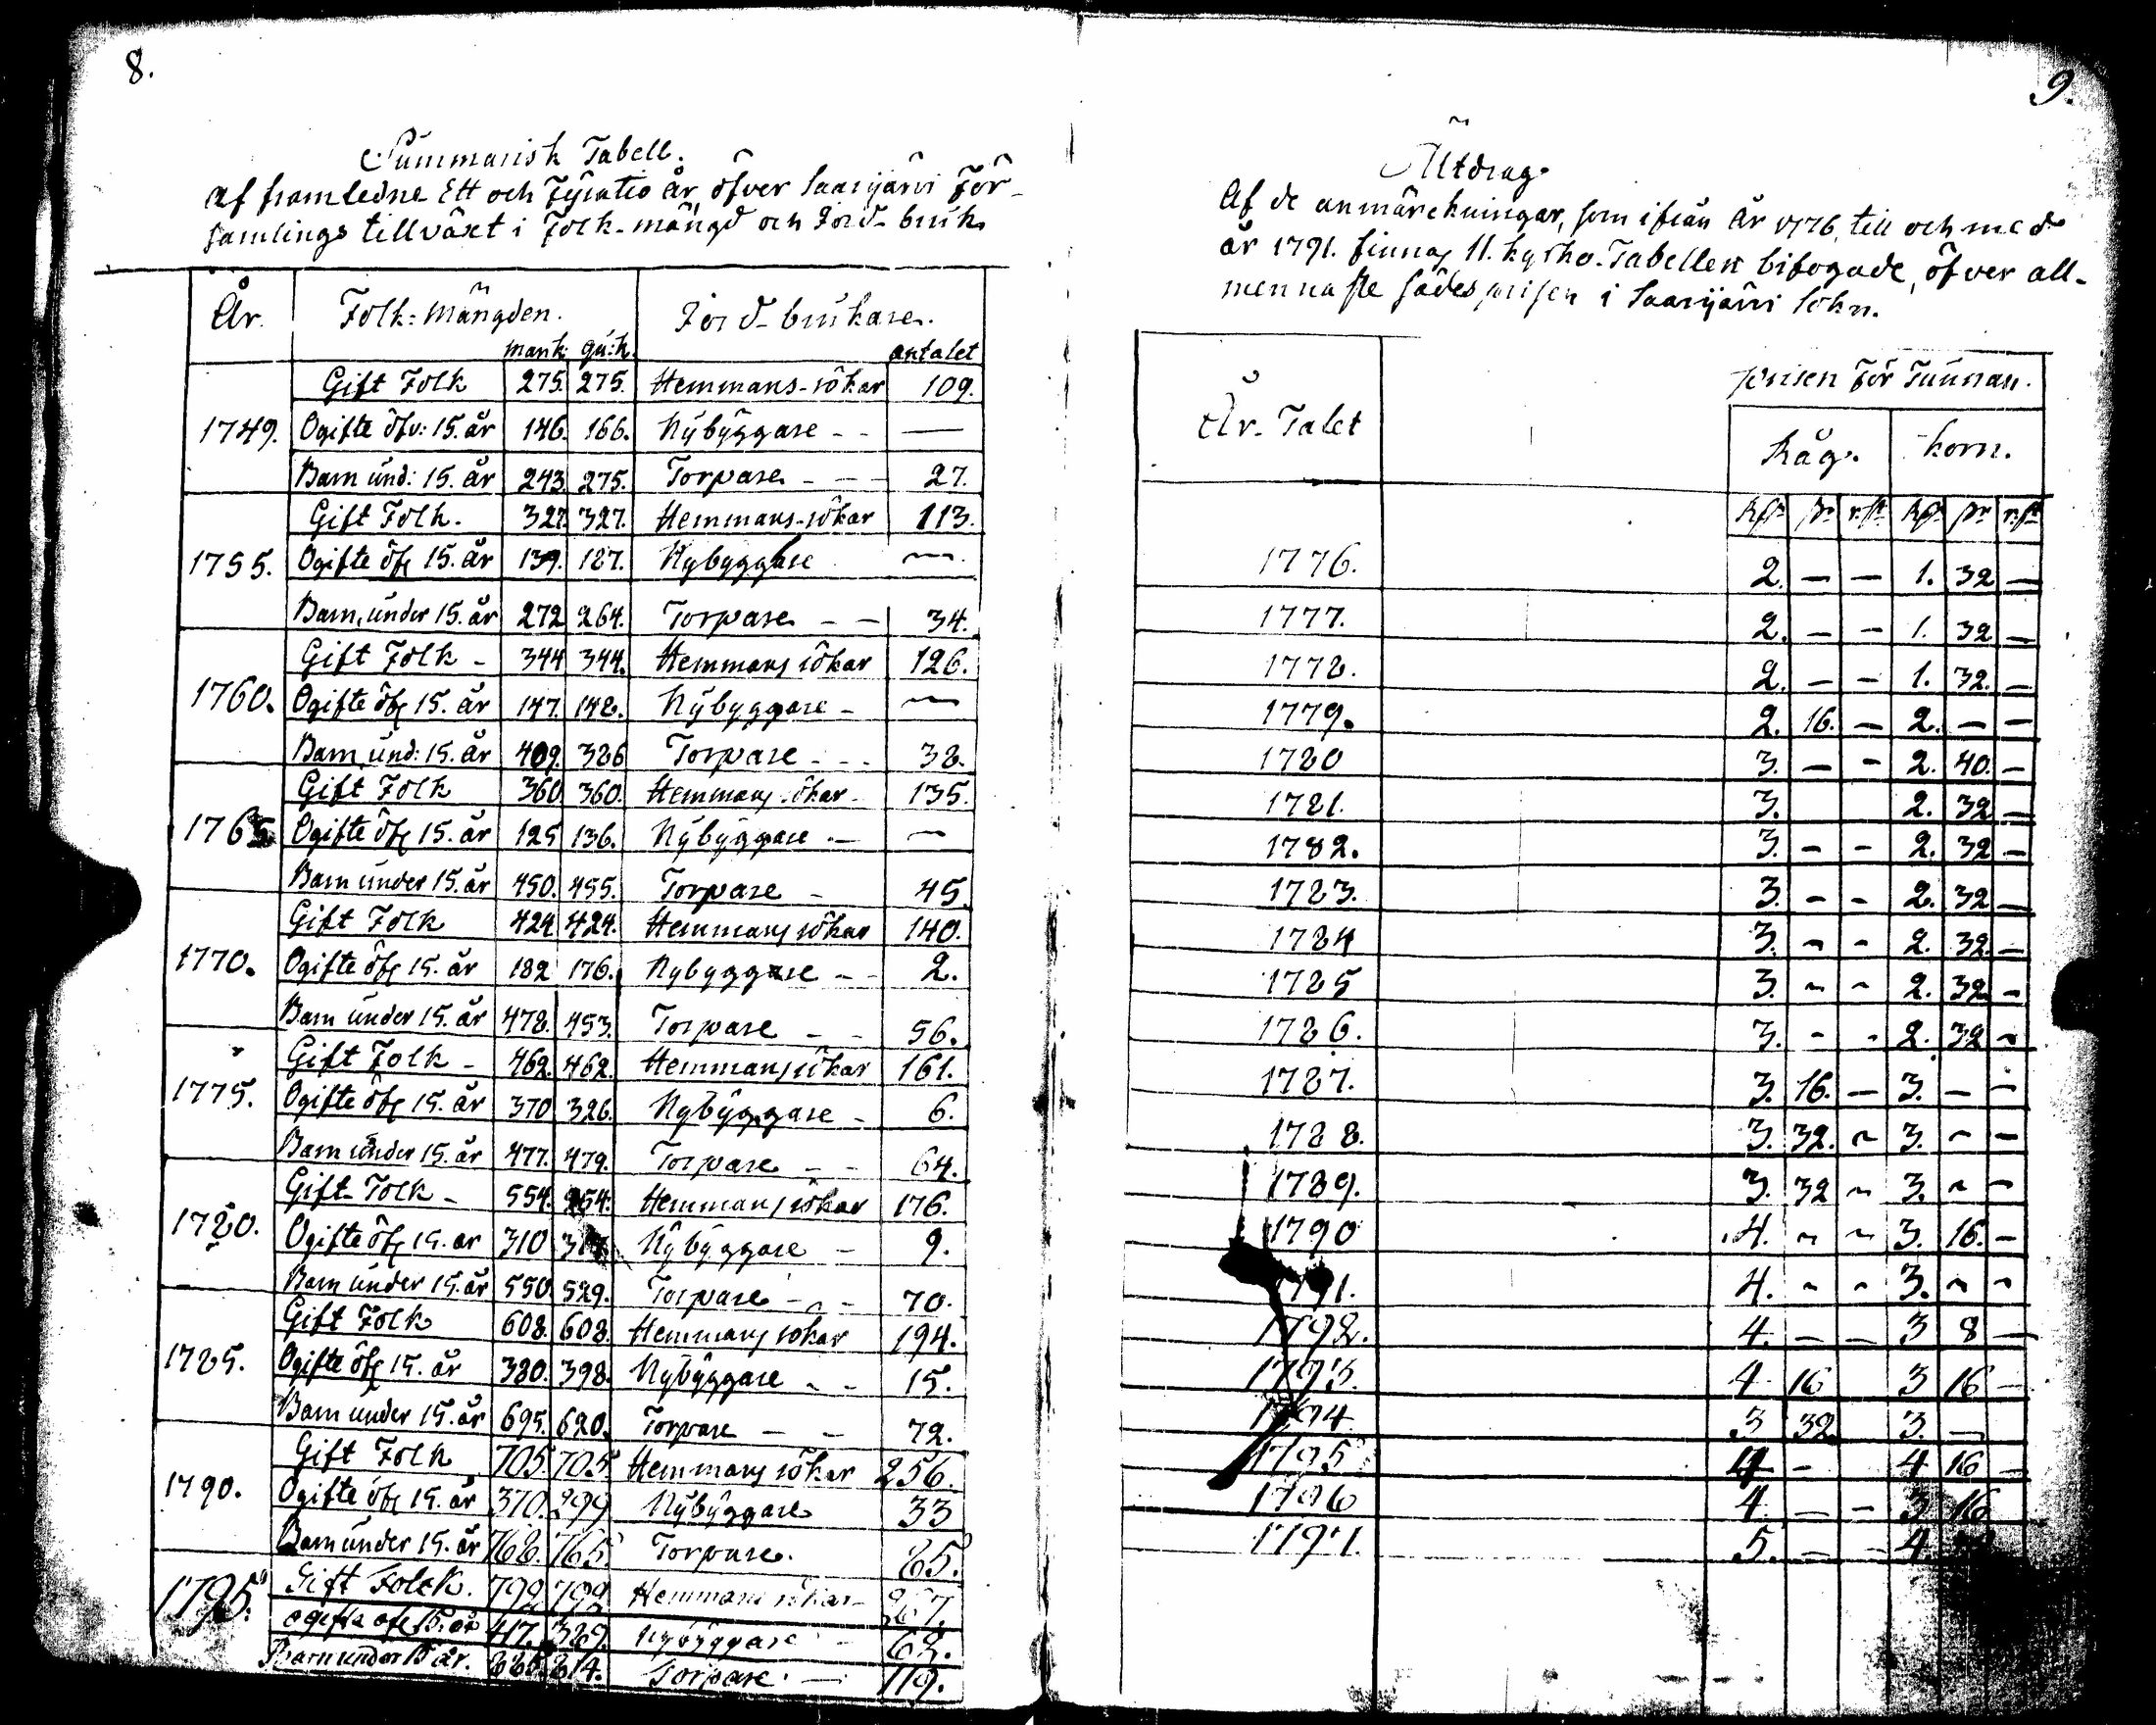 8.
Summarisk Tabell.
Af framledne Ett och Fyratio år, öfver Saarijärvi För-
samlings tillväxt i Folk-mängd och Jord-bruk
År. Folk-Mängden. Jord-brukare.
mank: qü:k. antalet
Gift Folk 275. 275. Hemmans-åbar 109.
1749. Ogifte öfv: 15. år 146. 166. Nybyggare - - —
Barn und: 15. år 243. 275. Torpare - - - 27.
Gift Folk. 327. 327. Hemmans-åbar 113.
1755. Ogifte öfv 15. år 139. 127. Nybyggare —
Barn under 15. år 272 264. Torpare - - 34.
Gift Folk - 344 344. Hemmans åbar 126.
1760. Ogifte öfv 15. år 147. 148. Nybyggare - —
Barn und: 15. år 409. 386 Torpare - - - 38.
Gift Folk 360 360. Hemmans åbar 135.
1765 Ogifte öfv 15. år 125 136. Nybyggare - —
Barn under 15. år 450. 455. Torpare - 45
Gift Folk 424 424. Hemmans åbar 140.
1770. Ogifte öfv 15. år 182 176. Nybyggare - - 2.
Barn under 15. år 478. 453. Torpare - - 56.
Gift Folk - 462. 462. Hemmans åbar 161.
1775. Ogifte öfv 15. år 370 326. Nybyggare - 6.
Barn under 15. år 477. 479. Torpare - - 64.
Gift Folk - 554. 554. Hemmans åbar 176.
1780. Ogifte öfv 15. år 310 Nybyggare - 9.
Barn under 15. år 550. 529. Torpare - - 70.
Gift Folk 608. 608. Hemmans åbar 194.
1785. Ogifte öfv 15. år 380. 398. Nybyggare - - 15.
Barn under 15. år 695. 620. Torpare - - 72.
Gift Folk 705. 705. Hemmans åbar 256.
1790. Ogifte öfv 15. år 370. 299 Nybyggare 33
Barn under 15. år 768. 765. Torpare. 85.
1795. Gift Folck. 799 799 Hemmans åbar - 267.
ogifta öfv 15. år 417. 329. Nybyggare - 68.
Barn under 15 år. 814. Torpare - 119.
9.
Utdrag
Af de anmärckningar, som ifrån År 1776, till och med
år 1791. finnas 11. kyrko-Tabellen bifogade, öfver all-
mennaste sädes prisen i Saarijärvi Sokn.
År-Talet Prisen För Tunnan.
Råg. Korn.
Rdr sk rst Rdr sk rst
1776. 2. — — 1. 32 —
1777. 2. — — 1. 32 —
1778. 2. — — 1. 32. —
1779. 2. 16. — 2. — —
1780 3. — — 2. 40. —
1781. 3. 2. 32 —
1782. 3. — — 2. 32 —
1783. 3. — — 2. 32 —
1784 3. — — 2. 32. —
1785 3. — — 2. 32 —
1786. 3. — — 2. 32 —
1787. 3. 16. — 3. — —
1788. 3. 32. — 3. — —
1789. 3. 32 — 3. — —
1790 4. — — 3. 16. —
1791. 4. — — 3. — —
1792. 4. — — 3 8 —
1793. 4 16 3 16 —
1794 3 32 3. —
1795 4 — 4 16 —
1796 4. — — 3 16
1797. 5. — — 4.